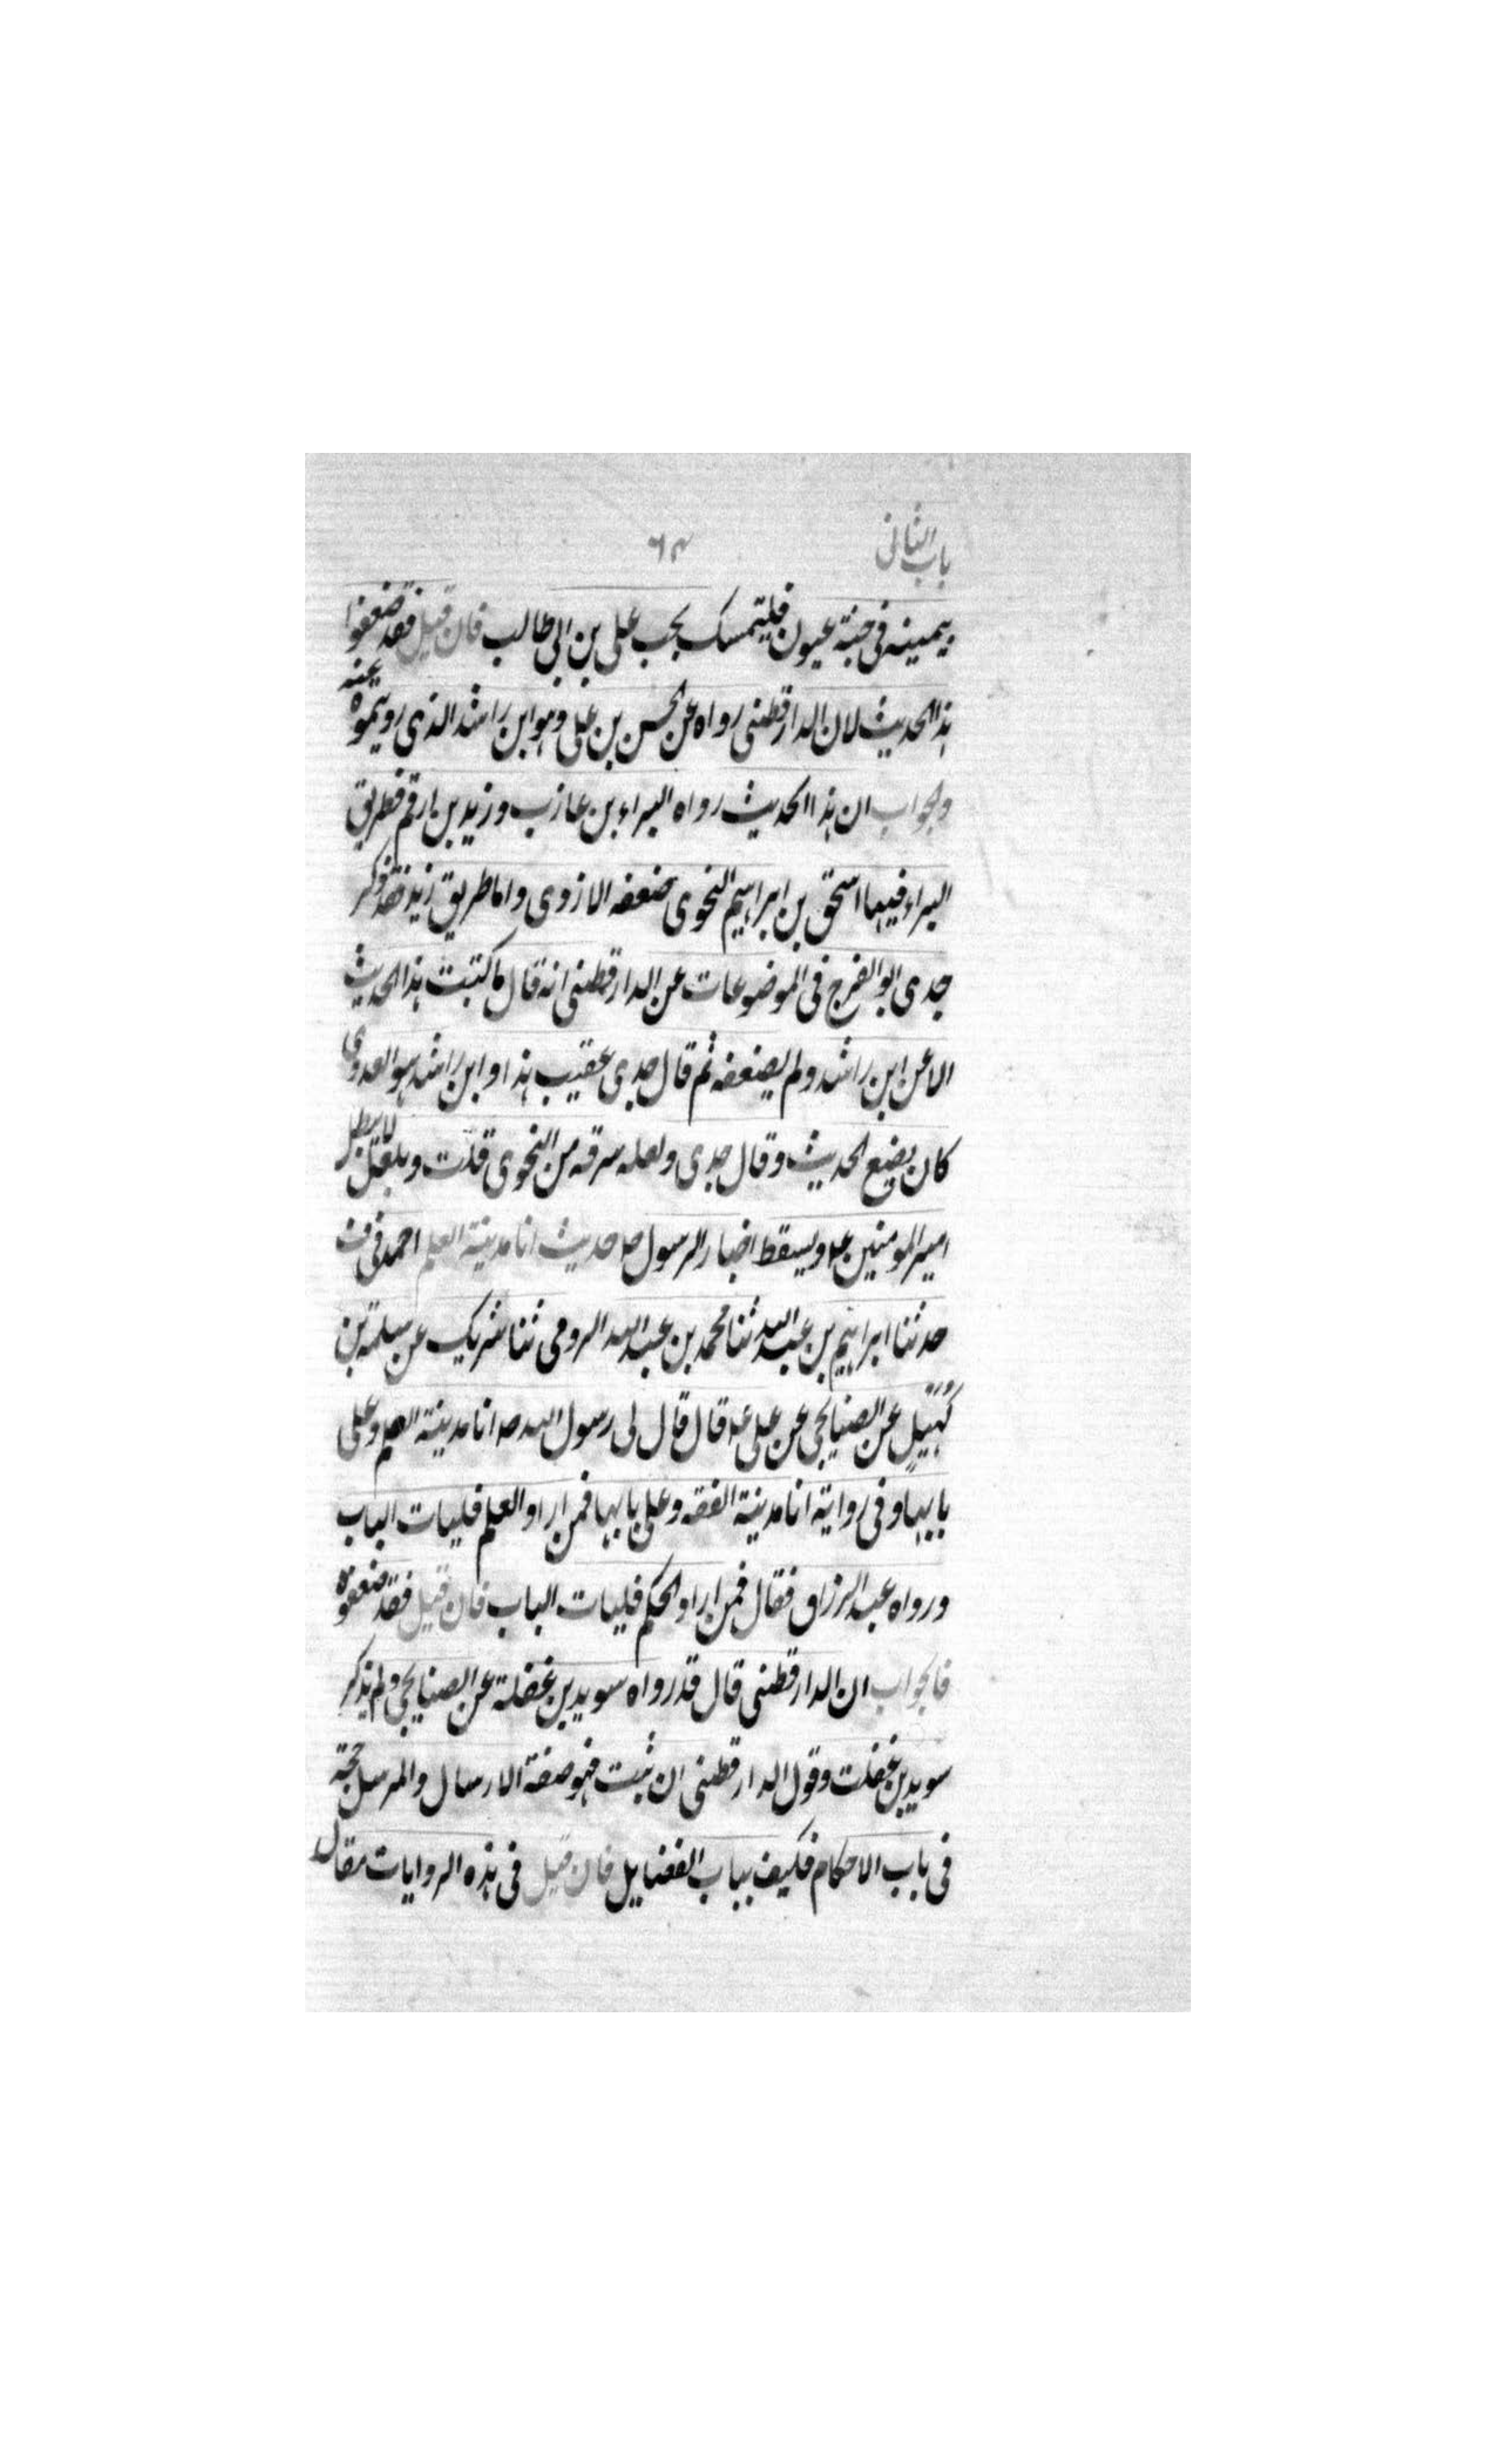 باب الثانی
٦٣
بیمینه فی جنة عیون فلیتمسک بحب علی بن ابی طالب فان قیل فقد ضعفوا
هذا الحدیث لان الدارقطنی رواه عن الحسن بن علی وهو ابن راشد الذی رویتموه عنه
والجواب ان هذا الحدیث رواه البراء بن عازب و زید بن ارقم فطریق
البراء فیها اسحق بن ابراهیم النحوی ضعفه الازدی واما طریق زید فقد ذکر
جدی ابو الفرج فی الموضوعات عن الدارقطنی انه قال ما کتبت هذا الحدیث
الا عن ابن راشد ولم یضعفه ثم قال جدی عقیب هذا وابن راشد هو العدوی
کان یضع الحدیث وقال جدی ولعله سرقه من النحوی قلت و بلعل لا یبطل
امیر المومنین ع و یسقط اخبار الرسول ص حدیث انا مدینة العلم احمد فی ف
حدثنا ابراهیم بن عبد الله ثنا محمد بن عبد الله الرومی ثنا شریک عن سلمة بن
کُهَیلٍ عن الصنابحی عن علی ع قال قال لی رسول الله ص انا مدینة العلم و علی
بابها و فی روایة انا مدینة الفقه و علی بابها فمن اراد العلم فلیات الباب
و رواه عبد الرزاق فقال فمن اراد الحکم فلیات الباب فان قیل فقد ضعفوه
فالجواب ان الدارقطنی قال قد رواه سوید بن غفلة عن الصنابحی ولم یذکر
سوید بن غفلت و قول الدارقطنی ان ثبت فهو صفة الارسال والمرسل حجة
فی باب الاحکام فکیف بباب الفضایل فان قیل فی هذه الروایات مقال